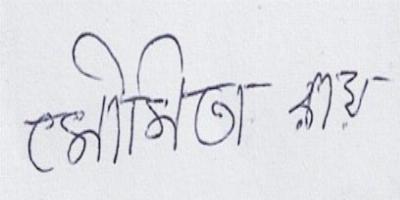 মৌমিতা রায়